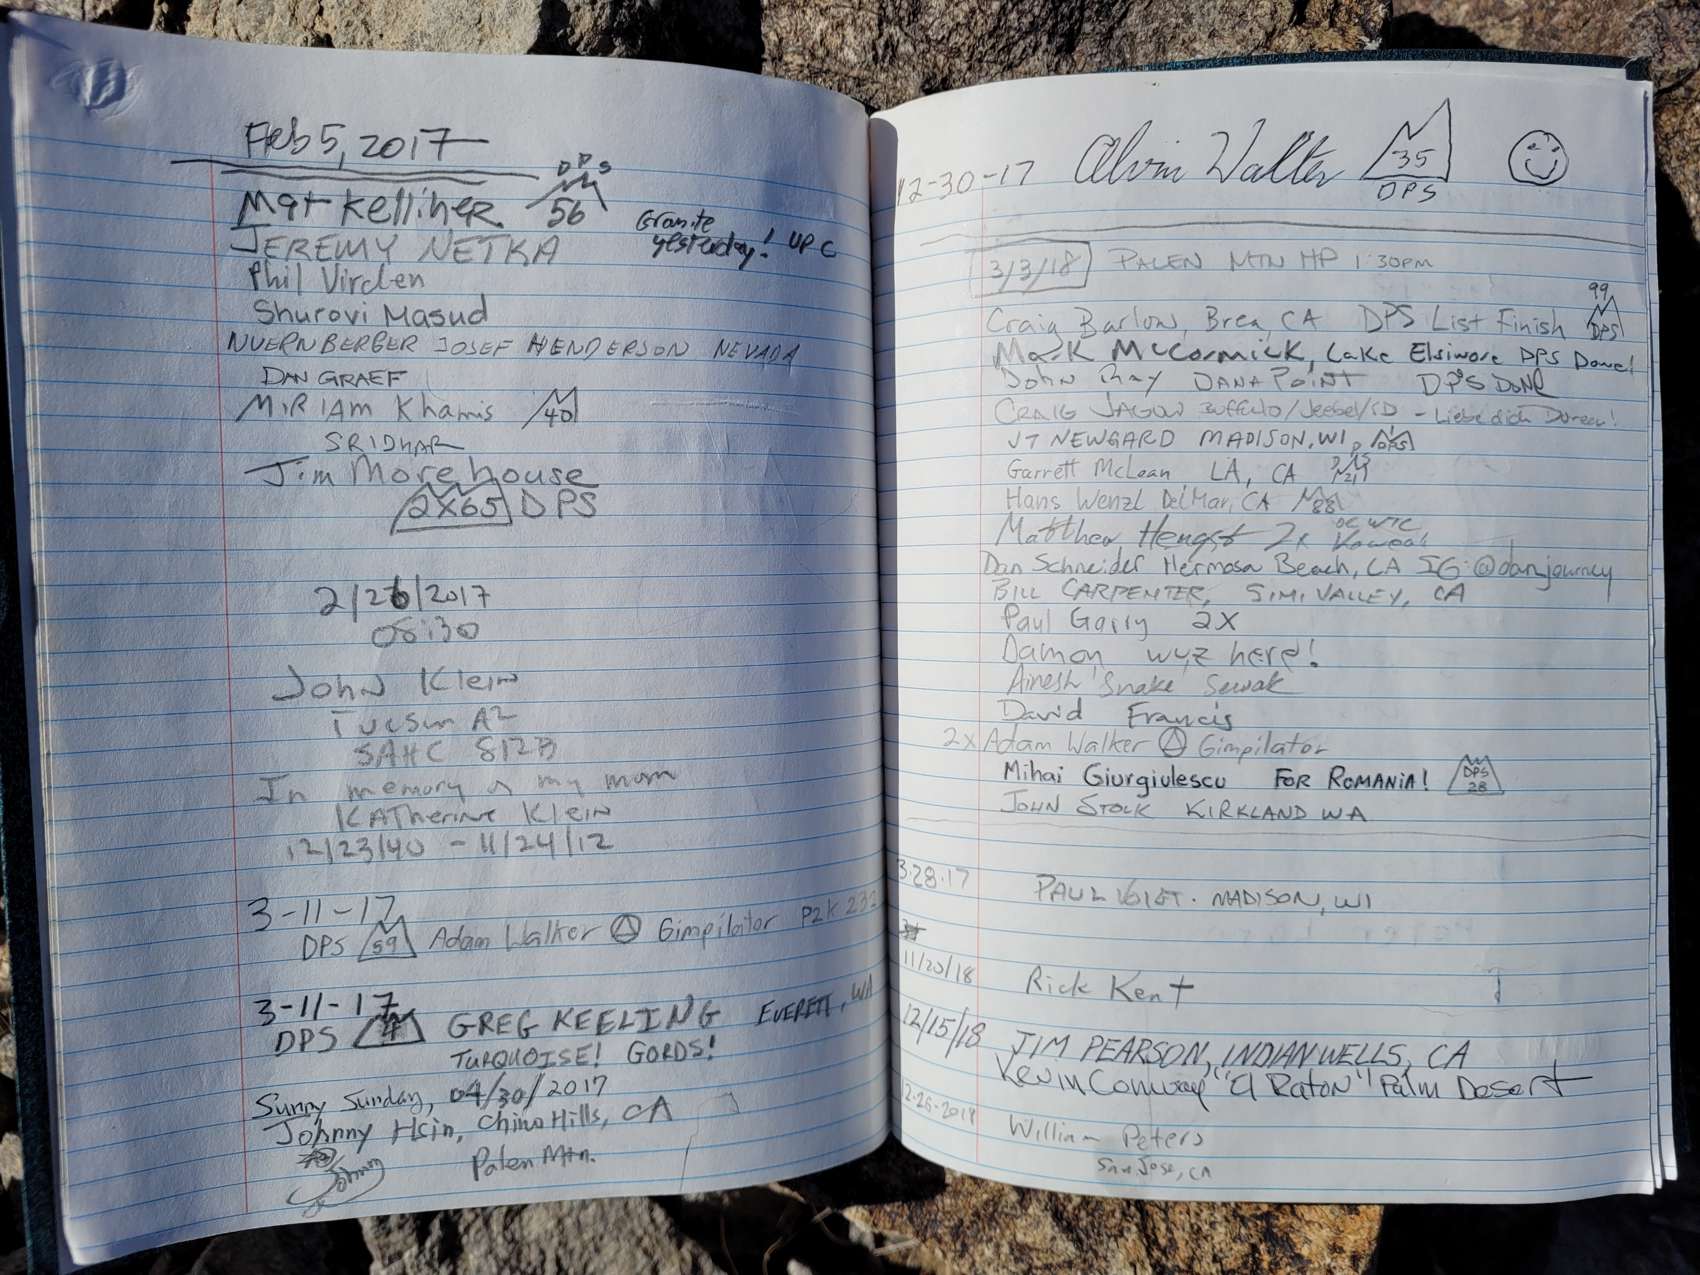 Feb 5, 2017
Mat Kelliher DPS 56
Granite
yesterday! UP C
JEREMY NETKA
Phil Virden
Shurovi Masud
NUERNBERGER JOSEF HENDERSON NEVADA
DAN GRAEF
MIRIAM Khamis 40
SRIDHAR
Jim Morehouse
2X65 DPS
2/26/2017
08:30
John Klein
Tucson AZ
SAHC 812B
In memory of my mom
KATherine Klein
12/23/40 - 11/24/12
3-11-17
DPS 59 Adam Walker Ⓐ Gimpilator P2K 232
3-11-17
DPS GREG KEELING EVERETT, WA
TURQUOISE! GORDS!
Sunny Sunday, 04/30/2017
Johnny Hsin, Chino Hills, CA
Johnny Palen Mtn.
12-30-17 Alvin Walter 35 DPS
3/3/18 PALEN MTN HP 1:30PM
Craig Barlow, Brea, CA DPS List Finish 99 DPS
Mark McCormick, Lake Elsinore DPS Done!
John Ray DANA POINT DPS DONE
CRAIG - Liebe dich Doreen!
JT NEWGARD MADISON, WI DPS
Garrett McLean LA, CA
Hans Wenzl Del Mar, CA 88
Matthew Hengst 2x OC WTC
Dan Schneider Hermosa Beach, CA IG: @danjourney
BILL CARPENTER, SIMI VALLEY, CA
Paul Garry 2X
Damon wuz here!
Ainesh "Snake" Sewak
David Francis
2x Adam Walker Ⓐ Gimpilator
Mihai Giurgiulescu FOR ROMANIA! DPS 28
JOHN STOCK KIRKLAND WA
3.28.17 PAUL VOIGT. MADISON, WI
11/20/18 Rick Kent
12/15/18 JIM PEARSON, INDIAN WELLS, CA
Kevin Conway, "El Raton" Palm Desert
12-26-2018 William Peters
San Jose, CA